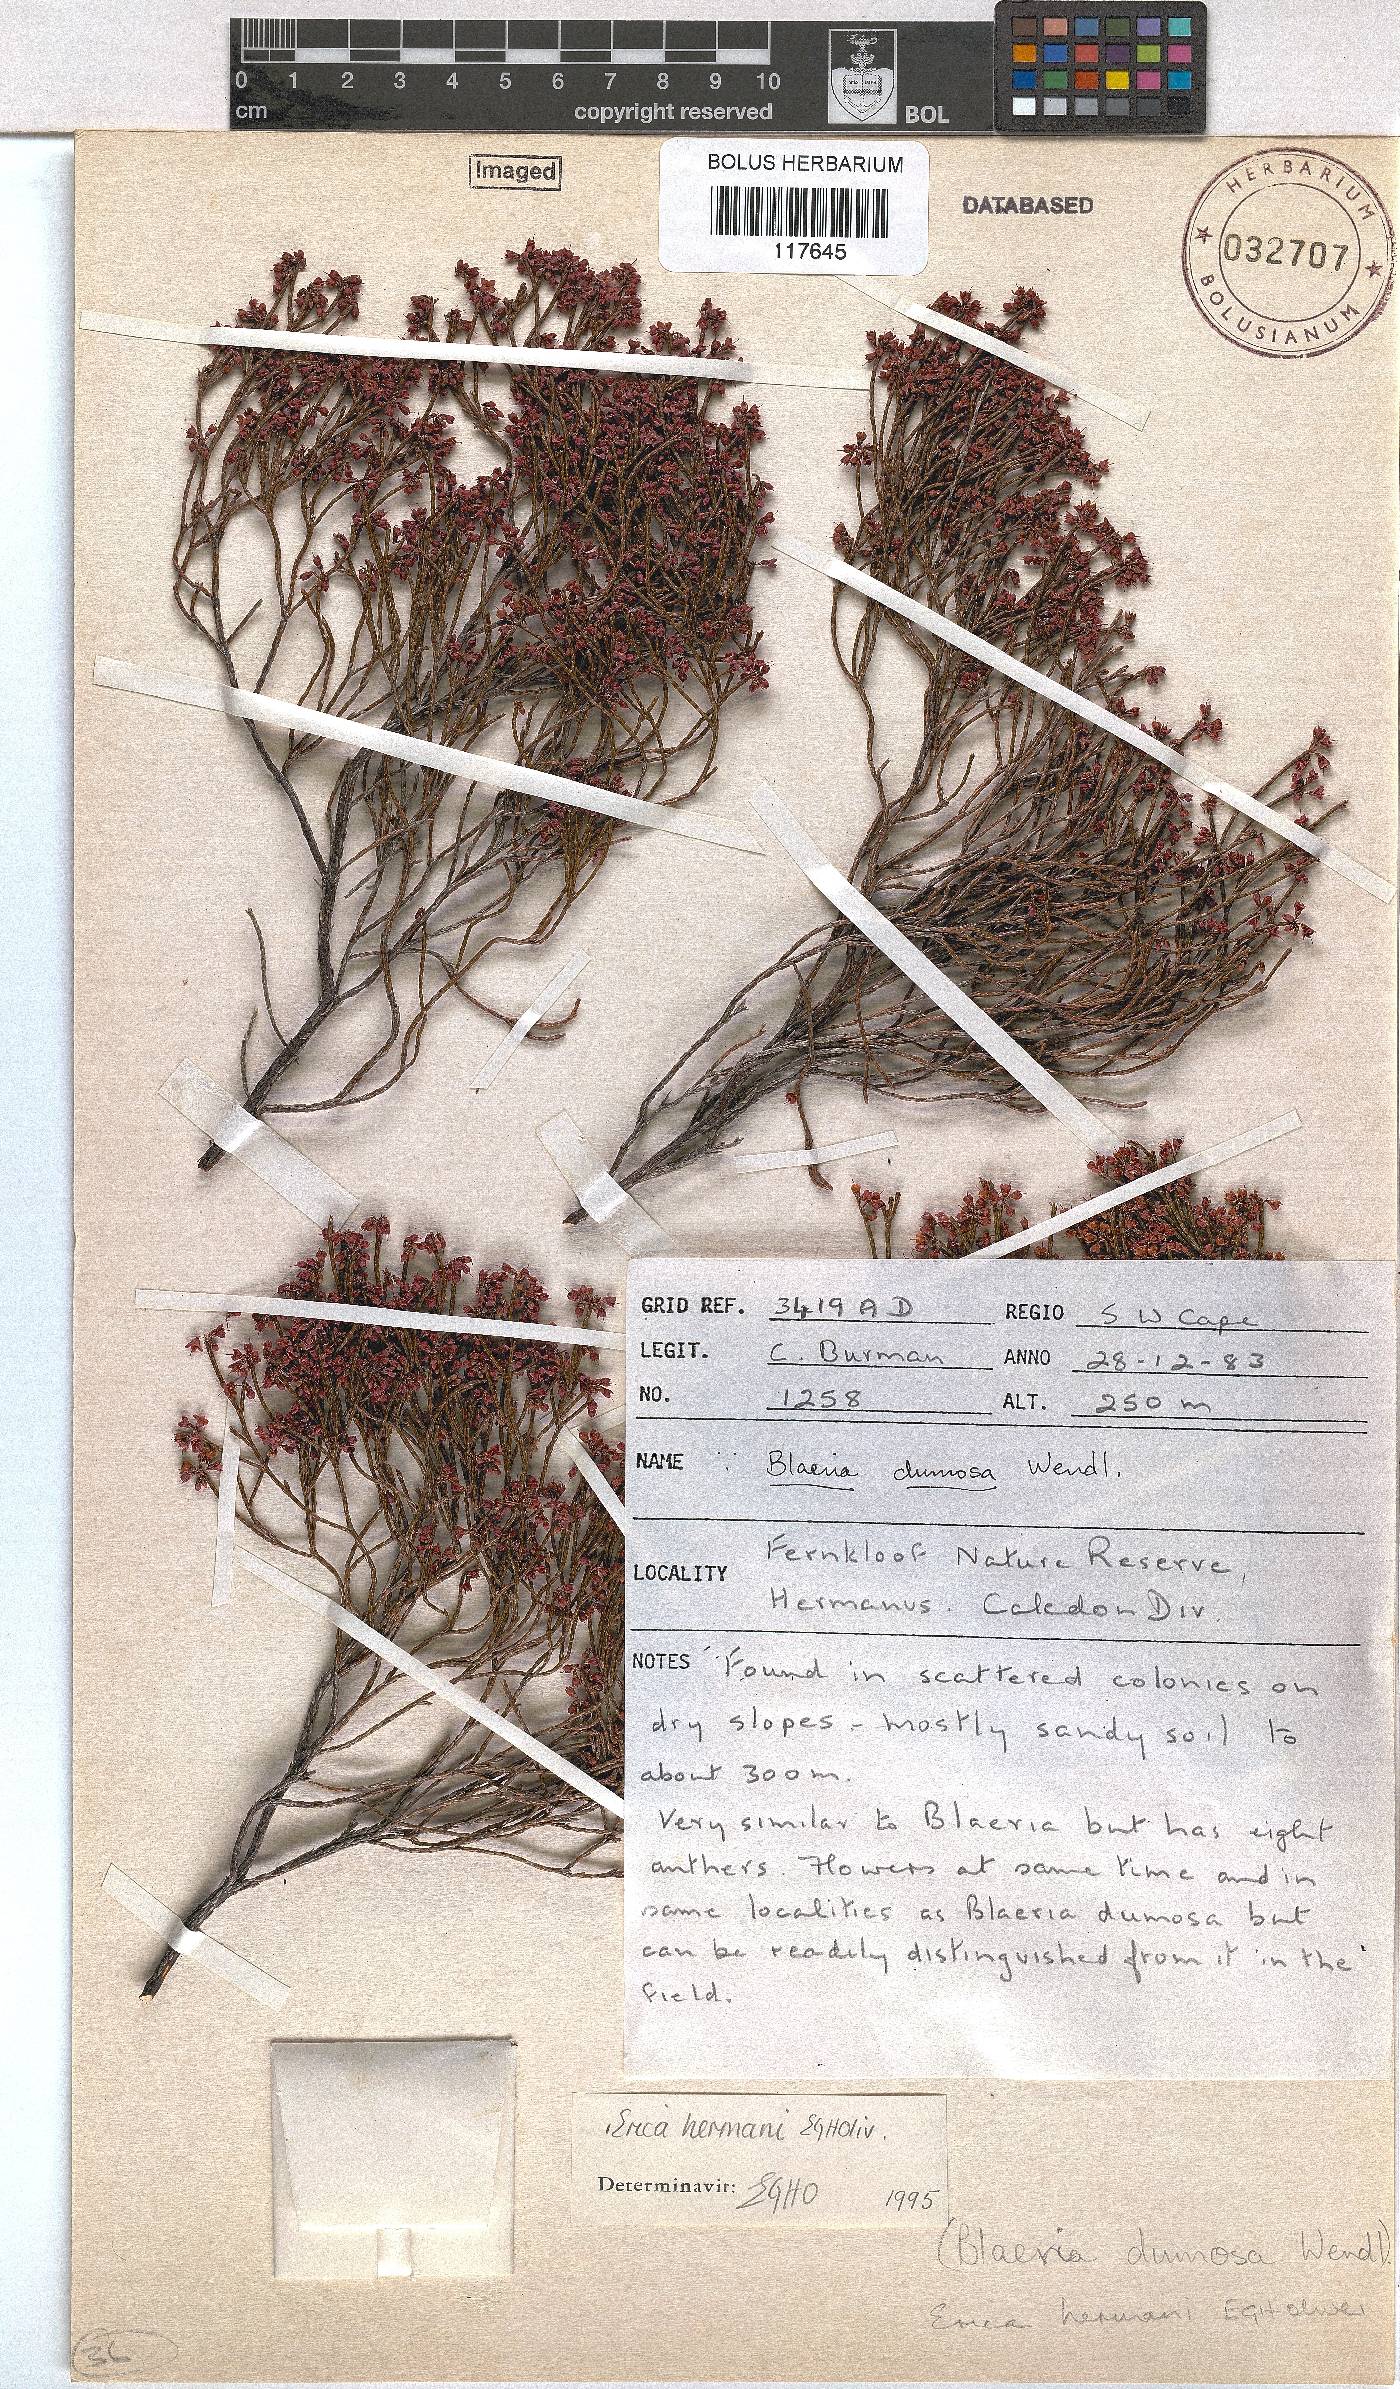 0 1 2 3 4 5 6 7 8 9 10
cm copyright reserved BOL
Imaged
BOLUS HERBARIUM
117645
DATABASED
HERBARIUM
032707
BOLUSIANUM
GRID REF. 3419 A D REGIO S W Cape
LEGIT. C. Burman ANNO 28-12-83
NO. 1258 ALT. 250 m
NAME Blaeria dumosa Wendl.
LOCALITY Fernkloof Nature Reserve,
Hermanus. Caledon Div.
NOTES Found in scattered colonies on
dry slopes - mostly sandy soil to
about 300 m.
Very similar to Blaeria but has eight
anthers. Flowers at same time and in
same localities as Blaeria dumosa but
can be readily distinguished from it in the
field.
Erica hermani EGHOliv.
Determinavit: EGHO 1995
(Blaeria dumosa Wendl)
Erica hermani EGHOliver
36